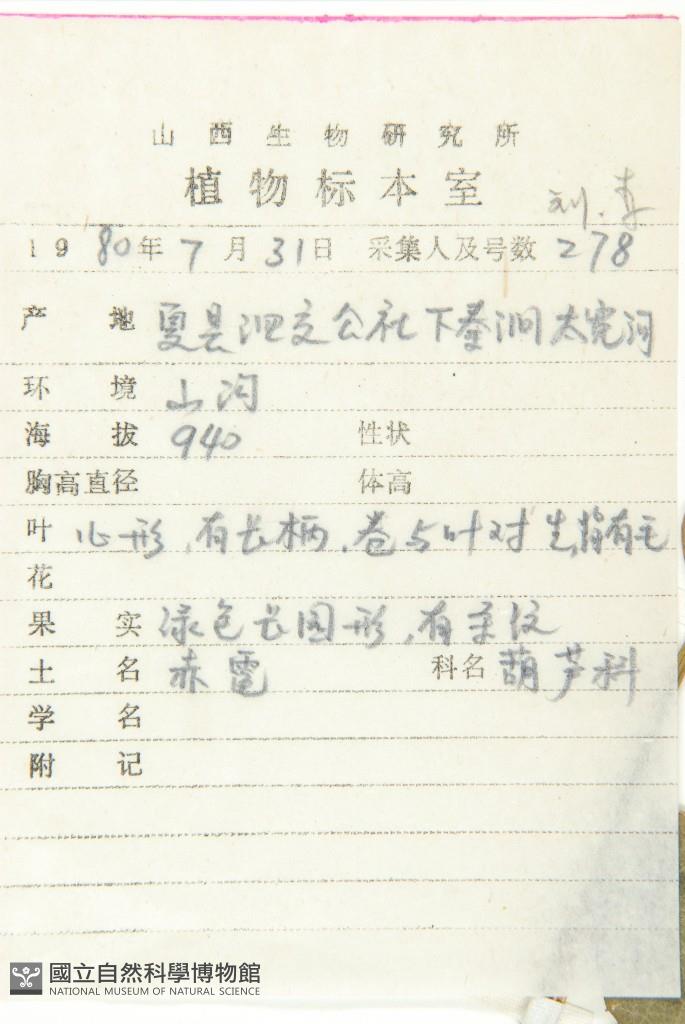 山西生物研究所
植物标本室
刘、李
1980年7月31日 采集人及号数 278
产地 夏县泗交公社下秦涧太宽河
环境 山沟
海拔 940 性状
胸高直径 体高
叶 心形,有长柄,卷与叶对生,均有毛
花
果实 绿色长园形,有条纹
土名 赤雹 科名 葫芦科
学名
附记
國立自然科學博物館
NATIONAL MUSEUM OF NATURAL SCIENCE